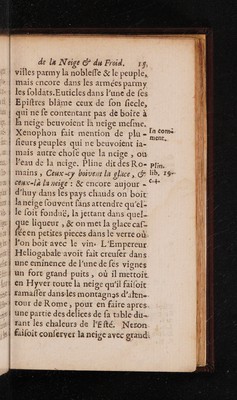 de la Neige & du Froid. 15.
villes parmy la noblesse & le peuple,
mais encore dans les armées parmy
les soldats. Euticles dans l'une de ses
Epistres blâme ceux de son siecle,
qui ne se contentant pas de boire à
la neige beuvoient la neige mesme.
Xenophon fait mention de plu-
sieurs peuples qui ne beuvoient ia-
mais autre chose que la neige, ou
l'eau de la neige. Pline dit des Ro-
mains, Ceux-cy boivent la glace, &
ceux-là la neige : & encore aujour-
d'huy dans les pays chauds on boit
la neige souvent sans attendre qu'el-
le soit fonduë, la jettant dans quel-
que liqueur, & on met la glace cas-
sée en petites pieces dans le verre où
l'on boit avec le vin. L'Empereur
Heliogabale avoit fait creuser dans
une eminence de l'une de ses vignes
un fort grand puits, où il mettoit
en Hyver toute la neige qu'il faisoit
ramasser dans les montagnes d'alen-
tour de Rome, pour en faire apres
une partie des delices de sa table du-
rant les chaleurs de l'Esté. Neron
faisoit conserver la neige avec grand
In com-
ment.
Plin.
lib. 19.
c. 4.